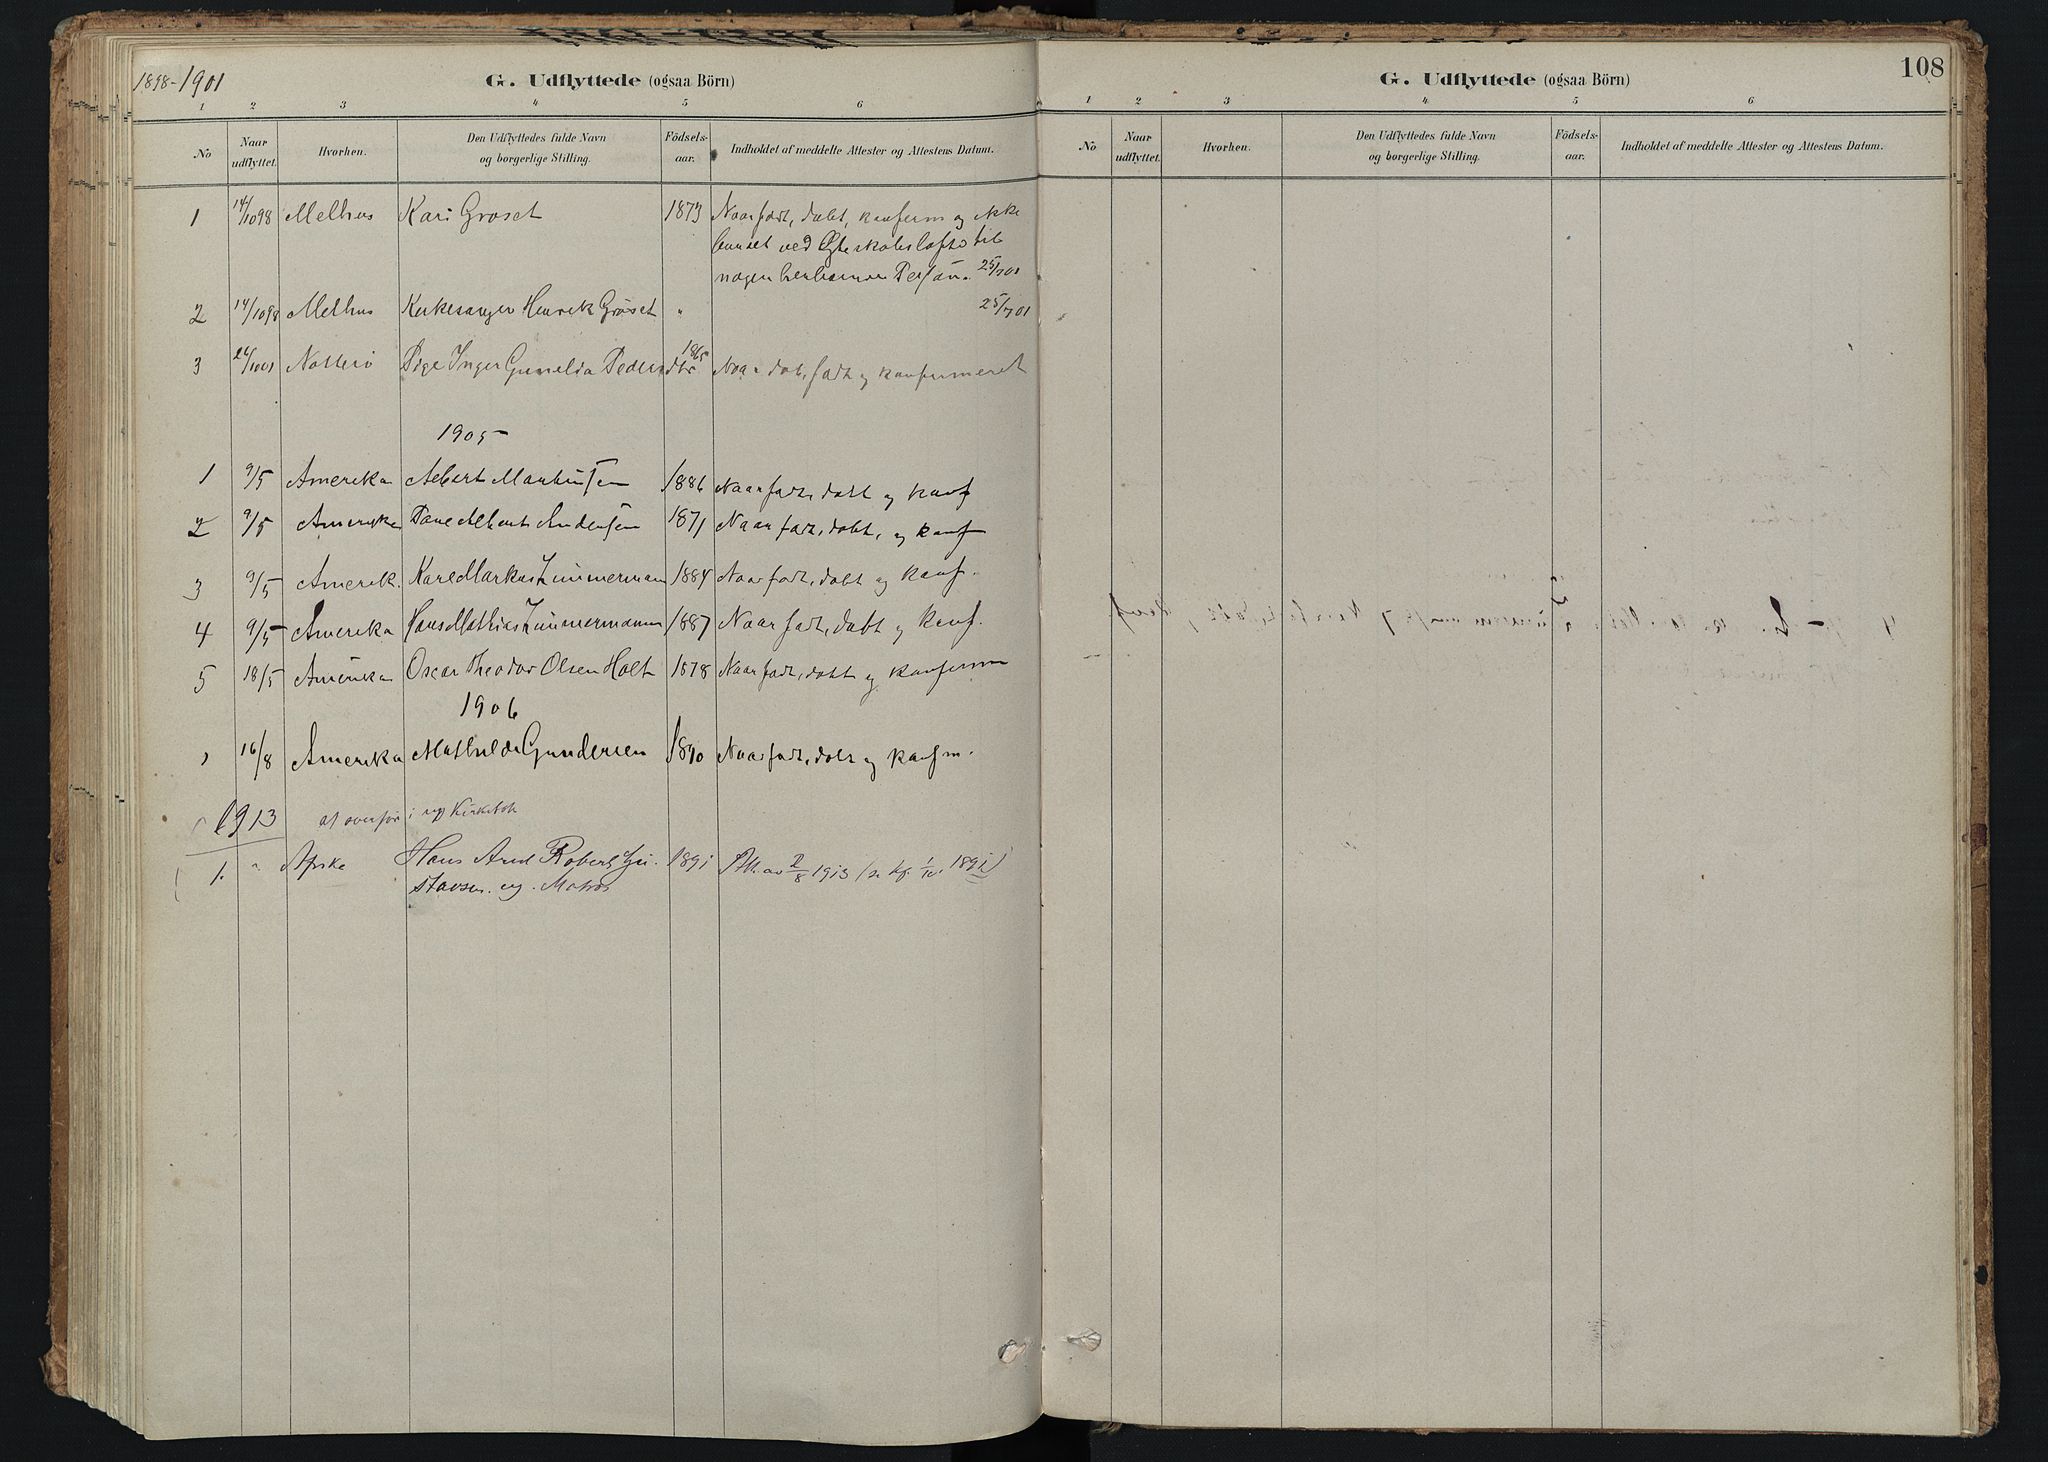 1898-1901
G. Udflyttede (ogsaa Börn)
1 2 3 4 5 6
No
Naar udflyttet.
Hvorhen.
Den Udflyttedes fulde Navn og borgerlige Stilling.
Födsels-aar.
Indholdet af meddelte Attester og Attestens Datum.
1 14/10 98 Melhus Kari Grøset 1873 Naar født, døbt, konferm og ikke
bundet ved Ægteskabsløfte til
nogen herboende Person. 25/7 01
2 14/10 98 Melhus Kirkesanger Henrik Grøset " 25/7 01
3 Nøtterø Pige Inger Gunelia Pedersdtr 1865 Naar døbt, født og konfermeret
1905
1 9/5 Amerika Albert Martinsen 1886 Naar født, døbt og konf
2 9/5 Amerika Albert Andersen 1871 Naar født, døbt, og konf
3 9/5 Amerik. Karl Markus Zimmermann 1884 Naar født, døbt og konf.
4 9/5 Amerika Hans Mathias Zimmermann 1887 Naar født, døbt og konf.
5 18/5 Amerika Oscar Theodor Olsen Holt 1878 Naar født, døbt og konferm
1906
1 16/8 Amerika Mathilde Gundersen 1890 Naar født, døbt og konfm.
1913 at overføre i ny Kirkebok
1. " Hans Arnd Robert Gu- 1891 2/8 1913
stavsen. ug. Matros
G. Udflyttede (ogsaa Börn)
108
1 2 3 4 5 6
No
Naar udflyttet.
Hvorhen.
Den Udflyttedes fulde Navn og borgerlige Stilling.
Födsels-aar.
Indholdet af meddelte Attester og Attestens Datum.